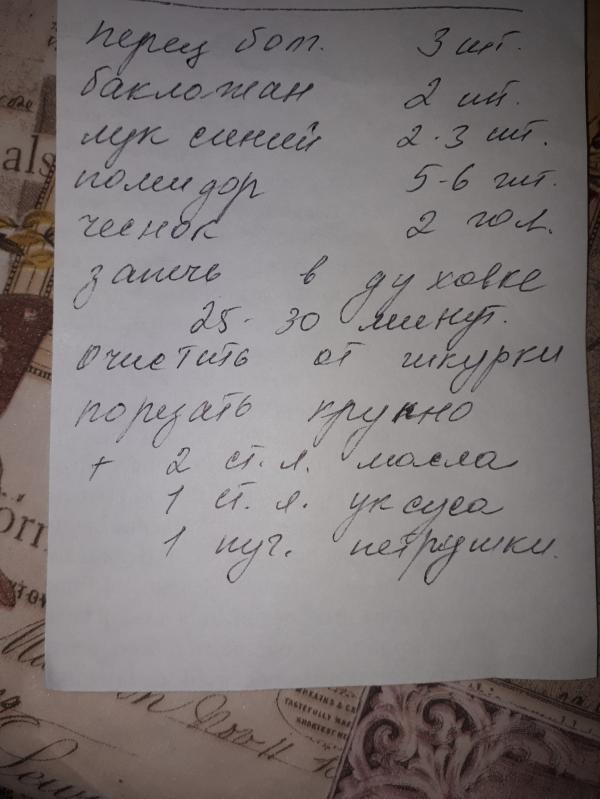 перец бол. 3 шт.
баклажан 2 шт.
лук синий 2-3 шт.
помидор 5-6 шт.
чеснок 2 гол.
запечь в духовке
25-30 минут.
очистить от шкурки
порезать крупно
+ 2 ст. л. масла
1 ст. л. уксуса
1 пуч. петрушки.
als
TASTEFULLY